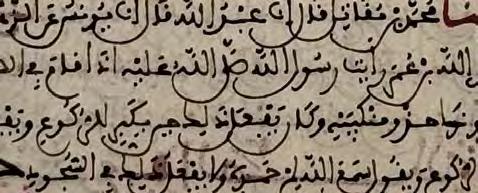 نا محمد بن مقاتل قال انا عبد الله قال انا يونس عن الز
الله بن عمر رايت رسول الله صلى الله عليه اذا قام في ال
ونا حذو منكبيه وكان يفعل ذلك حين يكبر للركوع ويف
الركوع ويقول سمع الله لمن حمده ولا يفعل ذلك في السجود